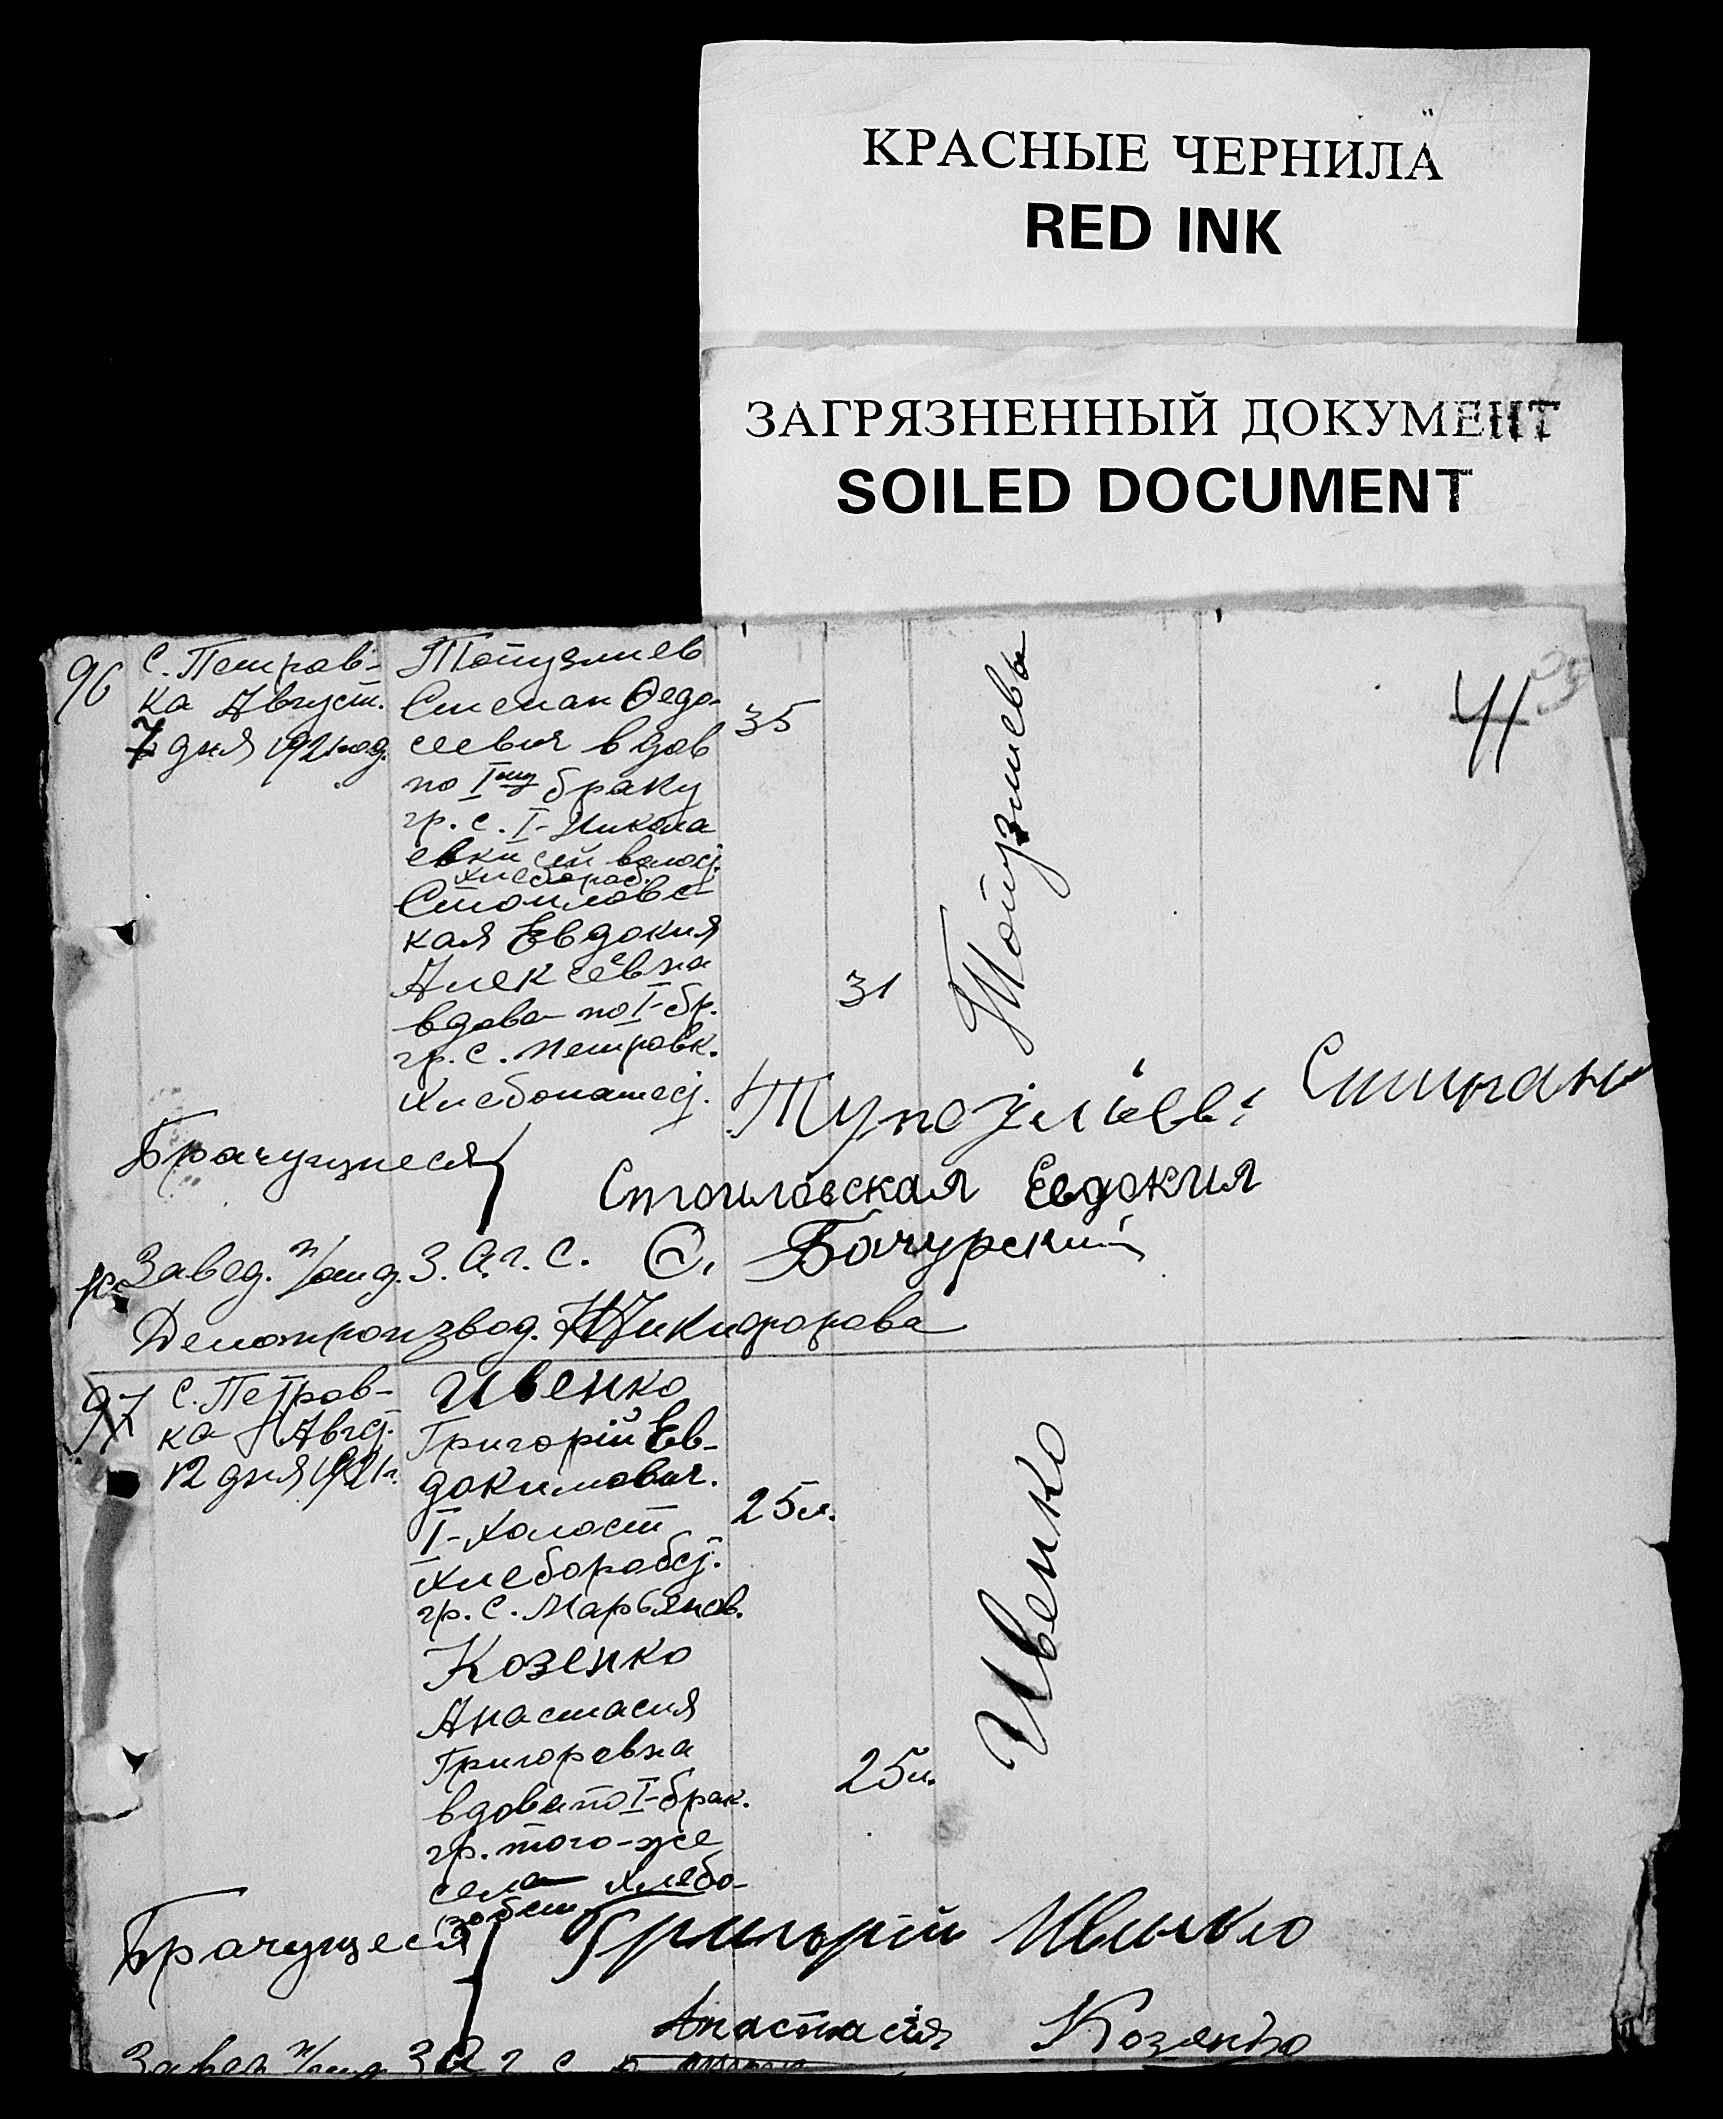 КРАСНЫЕ ЧЕРНИЛА
RED INK
ЗАГРЯЗНЕННЫЙ ДОКУМЕНТ
SOILED DOCUMENT
41
96
с. Петров-
ка Август.
7 дня 1921 год.
Топузлиев
Степан Федо-
сеевич вдов
по I му браку
гр. с. I-Никола
евки сей волос.
хлебороб.
Стоиловс-
кая Евдокия
Алексеевна
вдова по I-бр.
гр. с. Петровк.
хлебопашес.
35
31
Топузлиевы
Брачущиеся
Тупозлиев: Степан
Стоиловская Евдокия
Завед. п/отд. З.А.Г.С. Ф. Бачурский
Делопроизвод. Никифорова
97
с. Петров-
ка Авгус.
12 дня 1921 г.
Ивенко
Григорій Ев-
докимович.
I-холост
хлебороб.
гр. с. Марьянов.
Козенко
Анастасия
Григоревна
вдова по I-брак.
гр. того-же
села хлебо-
робст
25 л.
25 л.
Ивенко
Брачущиеся
Григорій Ивенко
Анастасія Козенко
Завед. п/отд. З А Г С